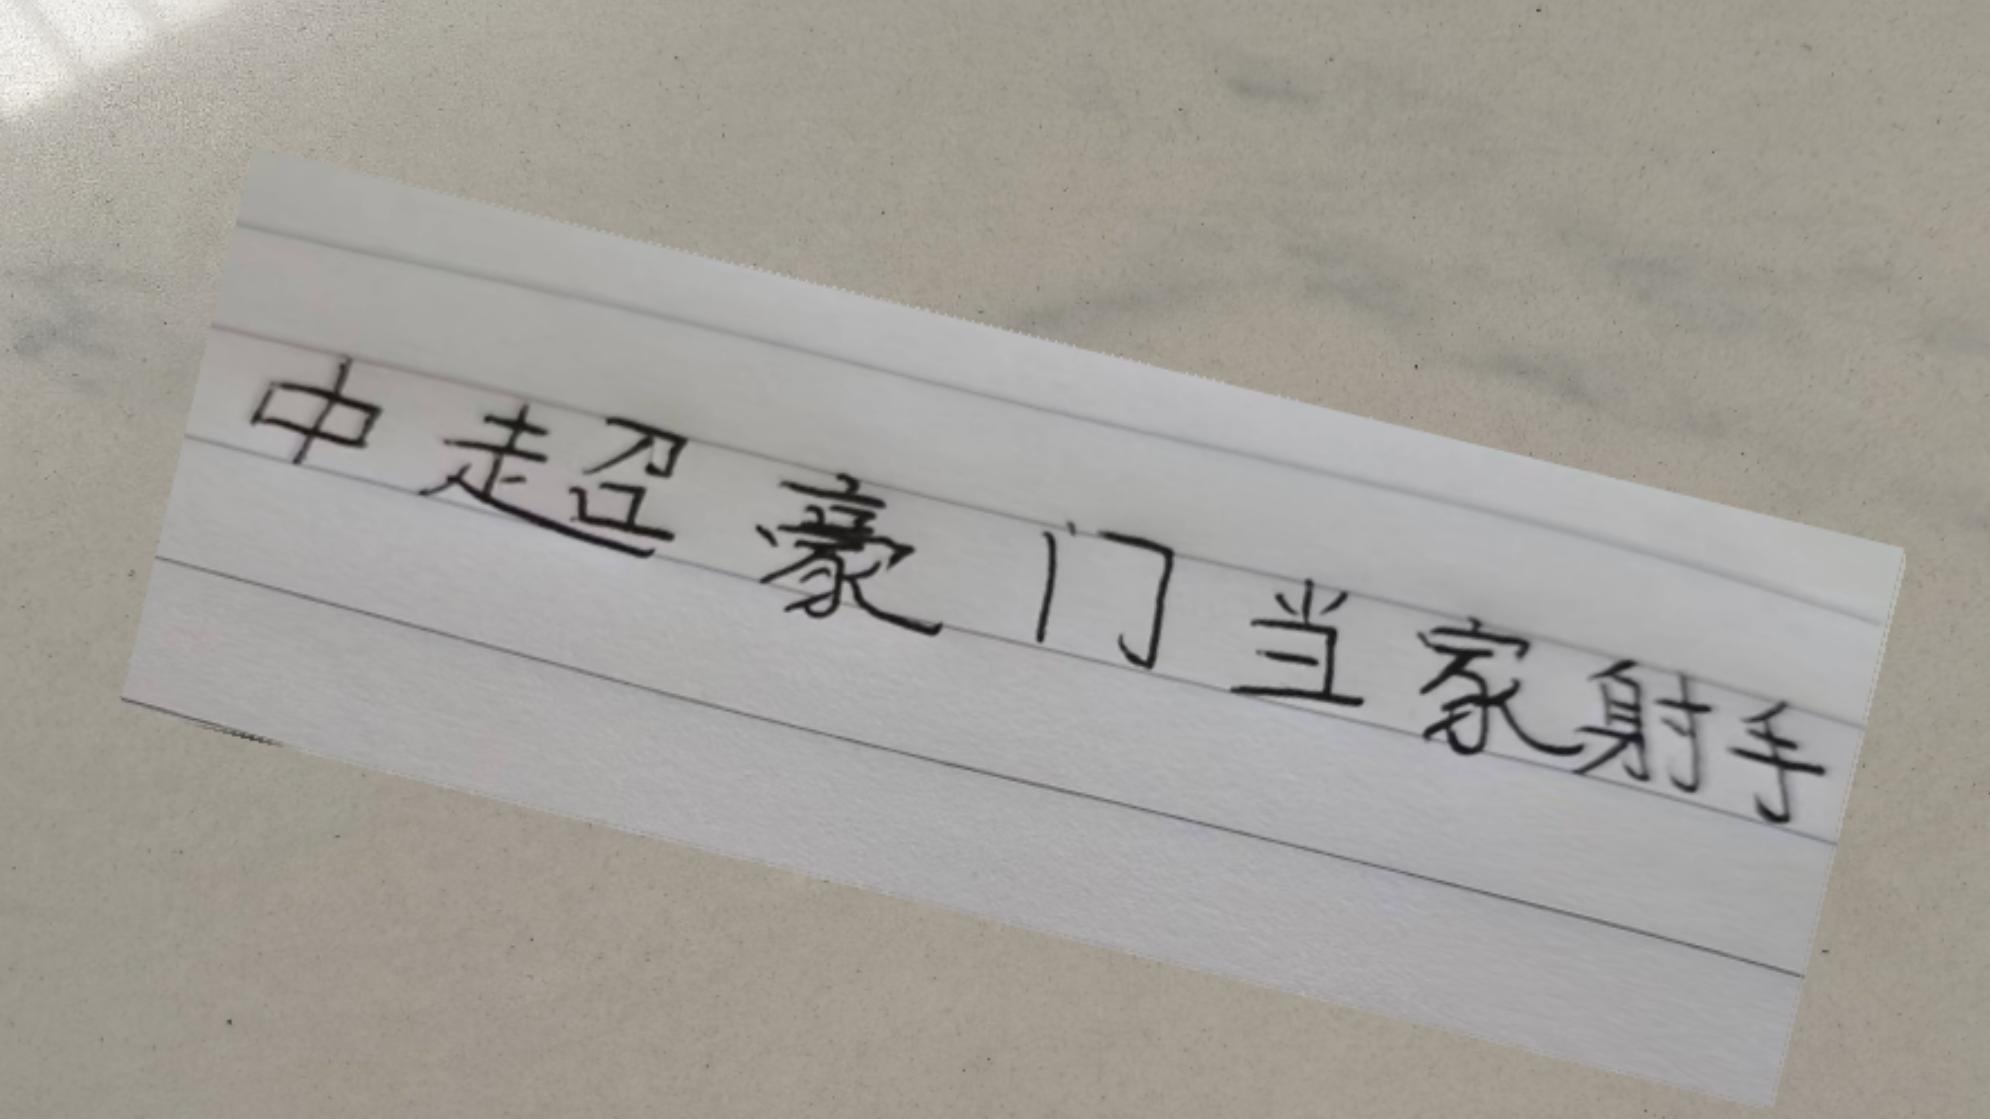 中超豪门当家射手